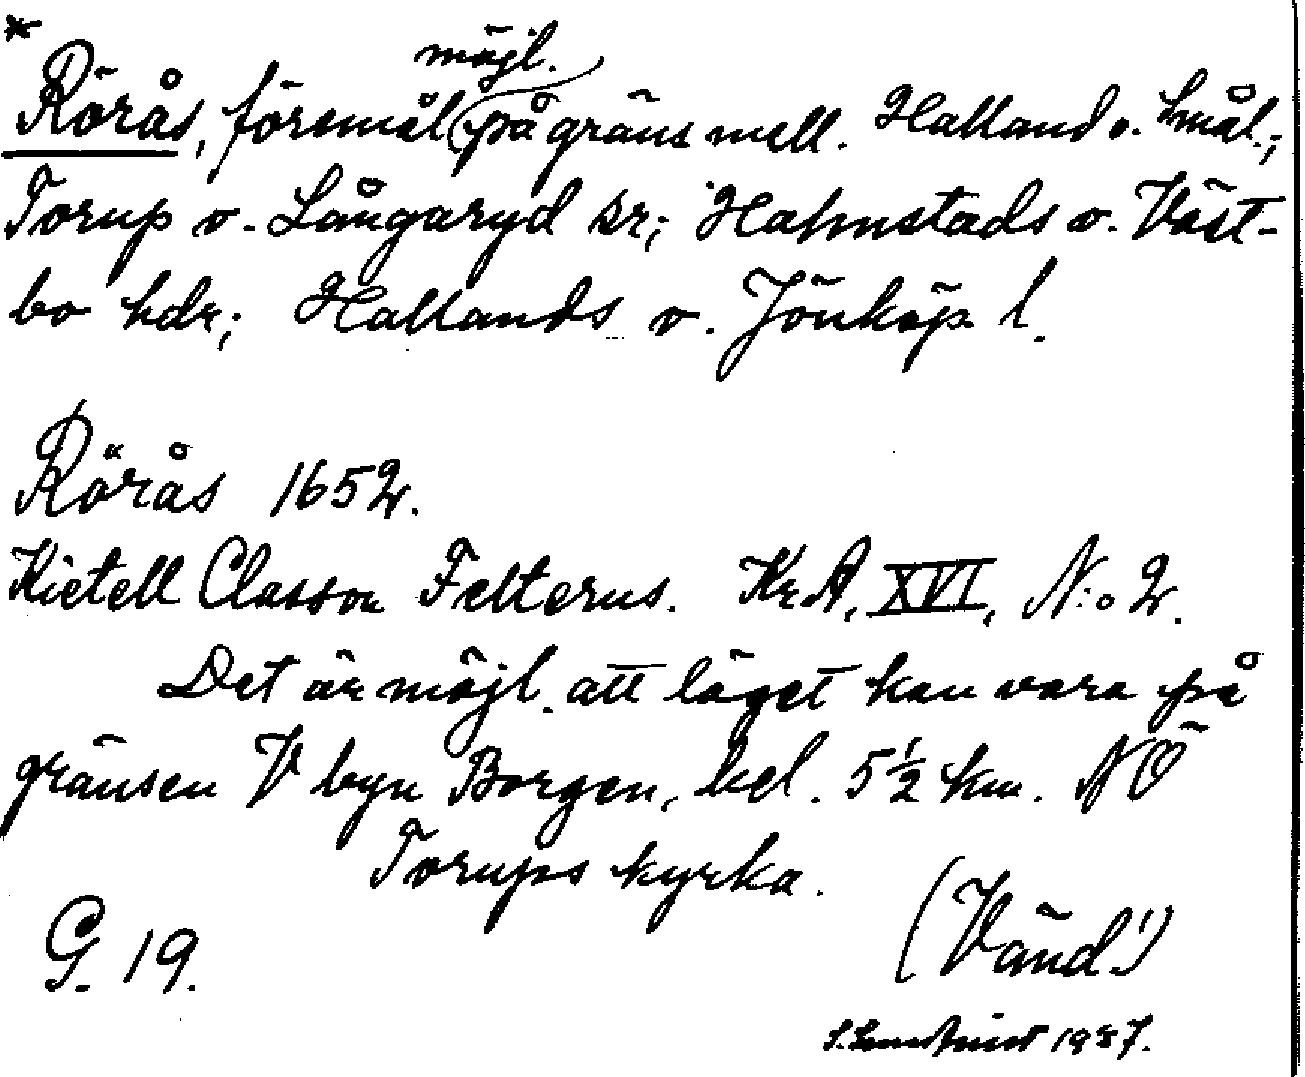 *
möjl.
Rörås, föremål (på gräns mell. Halland o. Smål.;
Torup o. Långaryd sn; Halmstads o. Väst-
bo hdr; Hallands o. Jönköp. l.
Rörås 1652.
Kietell Classon Felterus. Kr.A, XVI, N:o 2.
Det är möjl. att läget kan vara på
gränsen V byn Borgen, bel. 5½ km. NÖ
Torups kyrka.
(Vänd!)
G. 19.
1927.